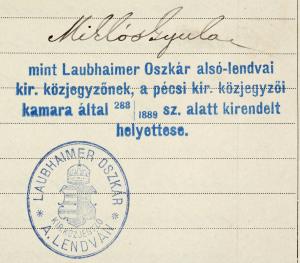 Miklós Gyula
mint Laubhaimer Oszkár alsó-lendvai
kir. közjegyzőnek, a pécsi kir. közjegyzői
kamara által 288 | 1889 sz. alatt kirendelt
helyettese.
LAUBHAIMER OSZKÁR
KIR. KÖZJEGYZŐ
* A. LENDVÁN *